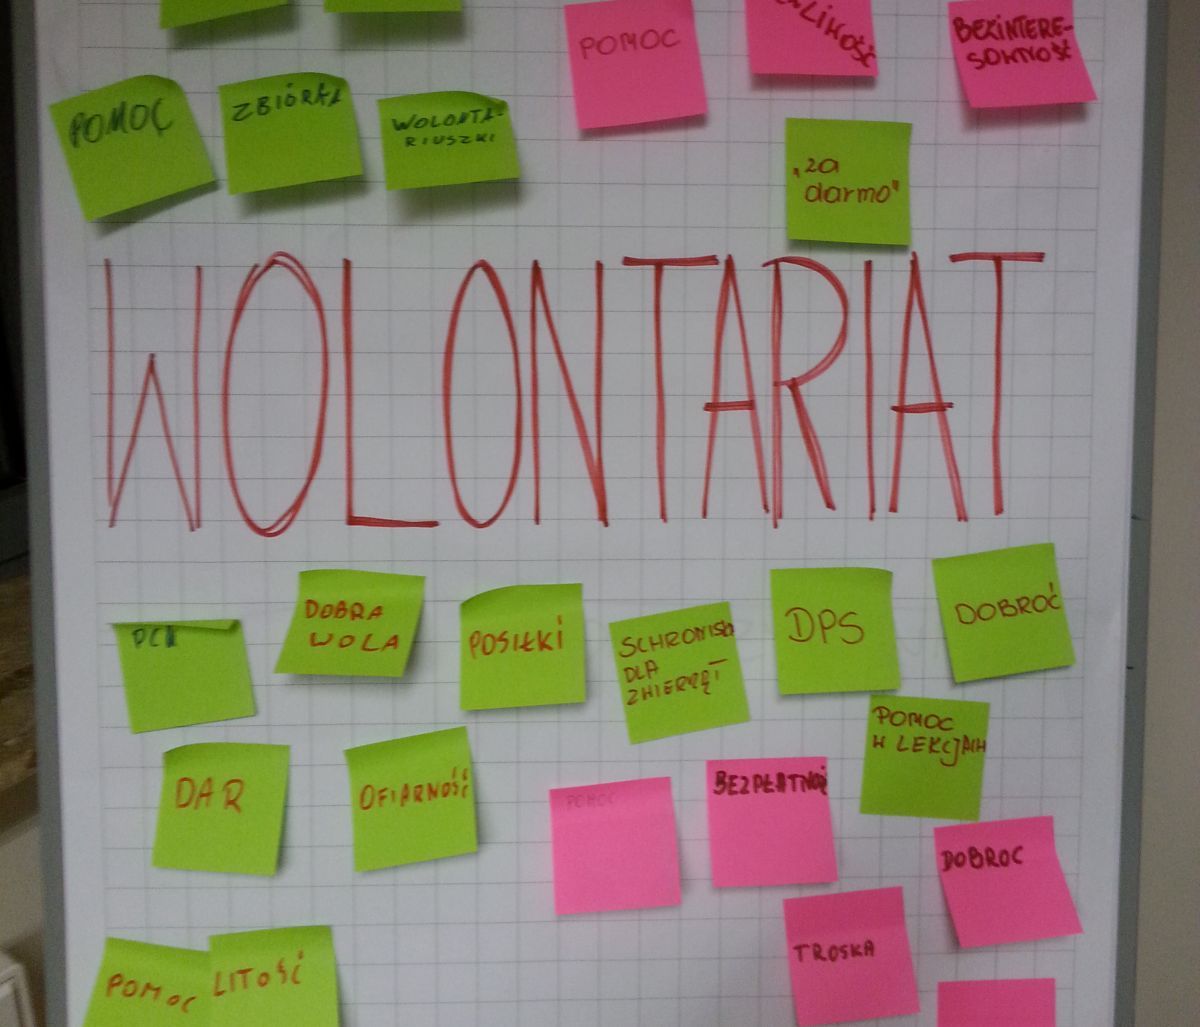 POMOC
BEZINTERE-
SOWNOŚĆ
POMOC
ZBIÓRKA
WOLONTA-
RIUSZKI
"za
darmo"
WOLONTARIAT
PCK
DOBRA
WOLA
POSIŁKI
SCHRONISK
DLA
ZWIERZĄT
DPS
DOBROĆ
POMOC
W LEKCJACH
DAR
OFIARNOŚĆ
POMOC
BEZPŁATNOŚĆ
DOBROĆ
TROSKA
POMOC
LITOŚĆ